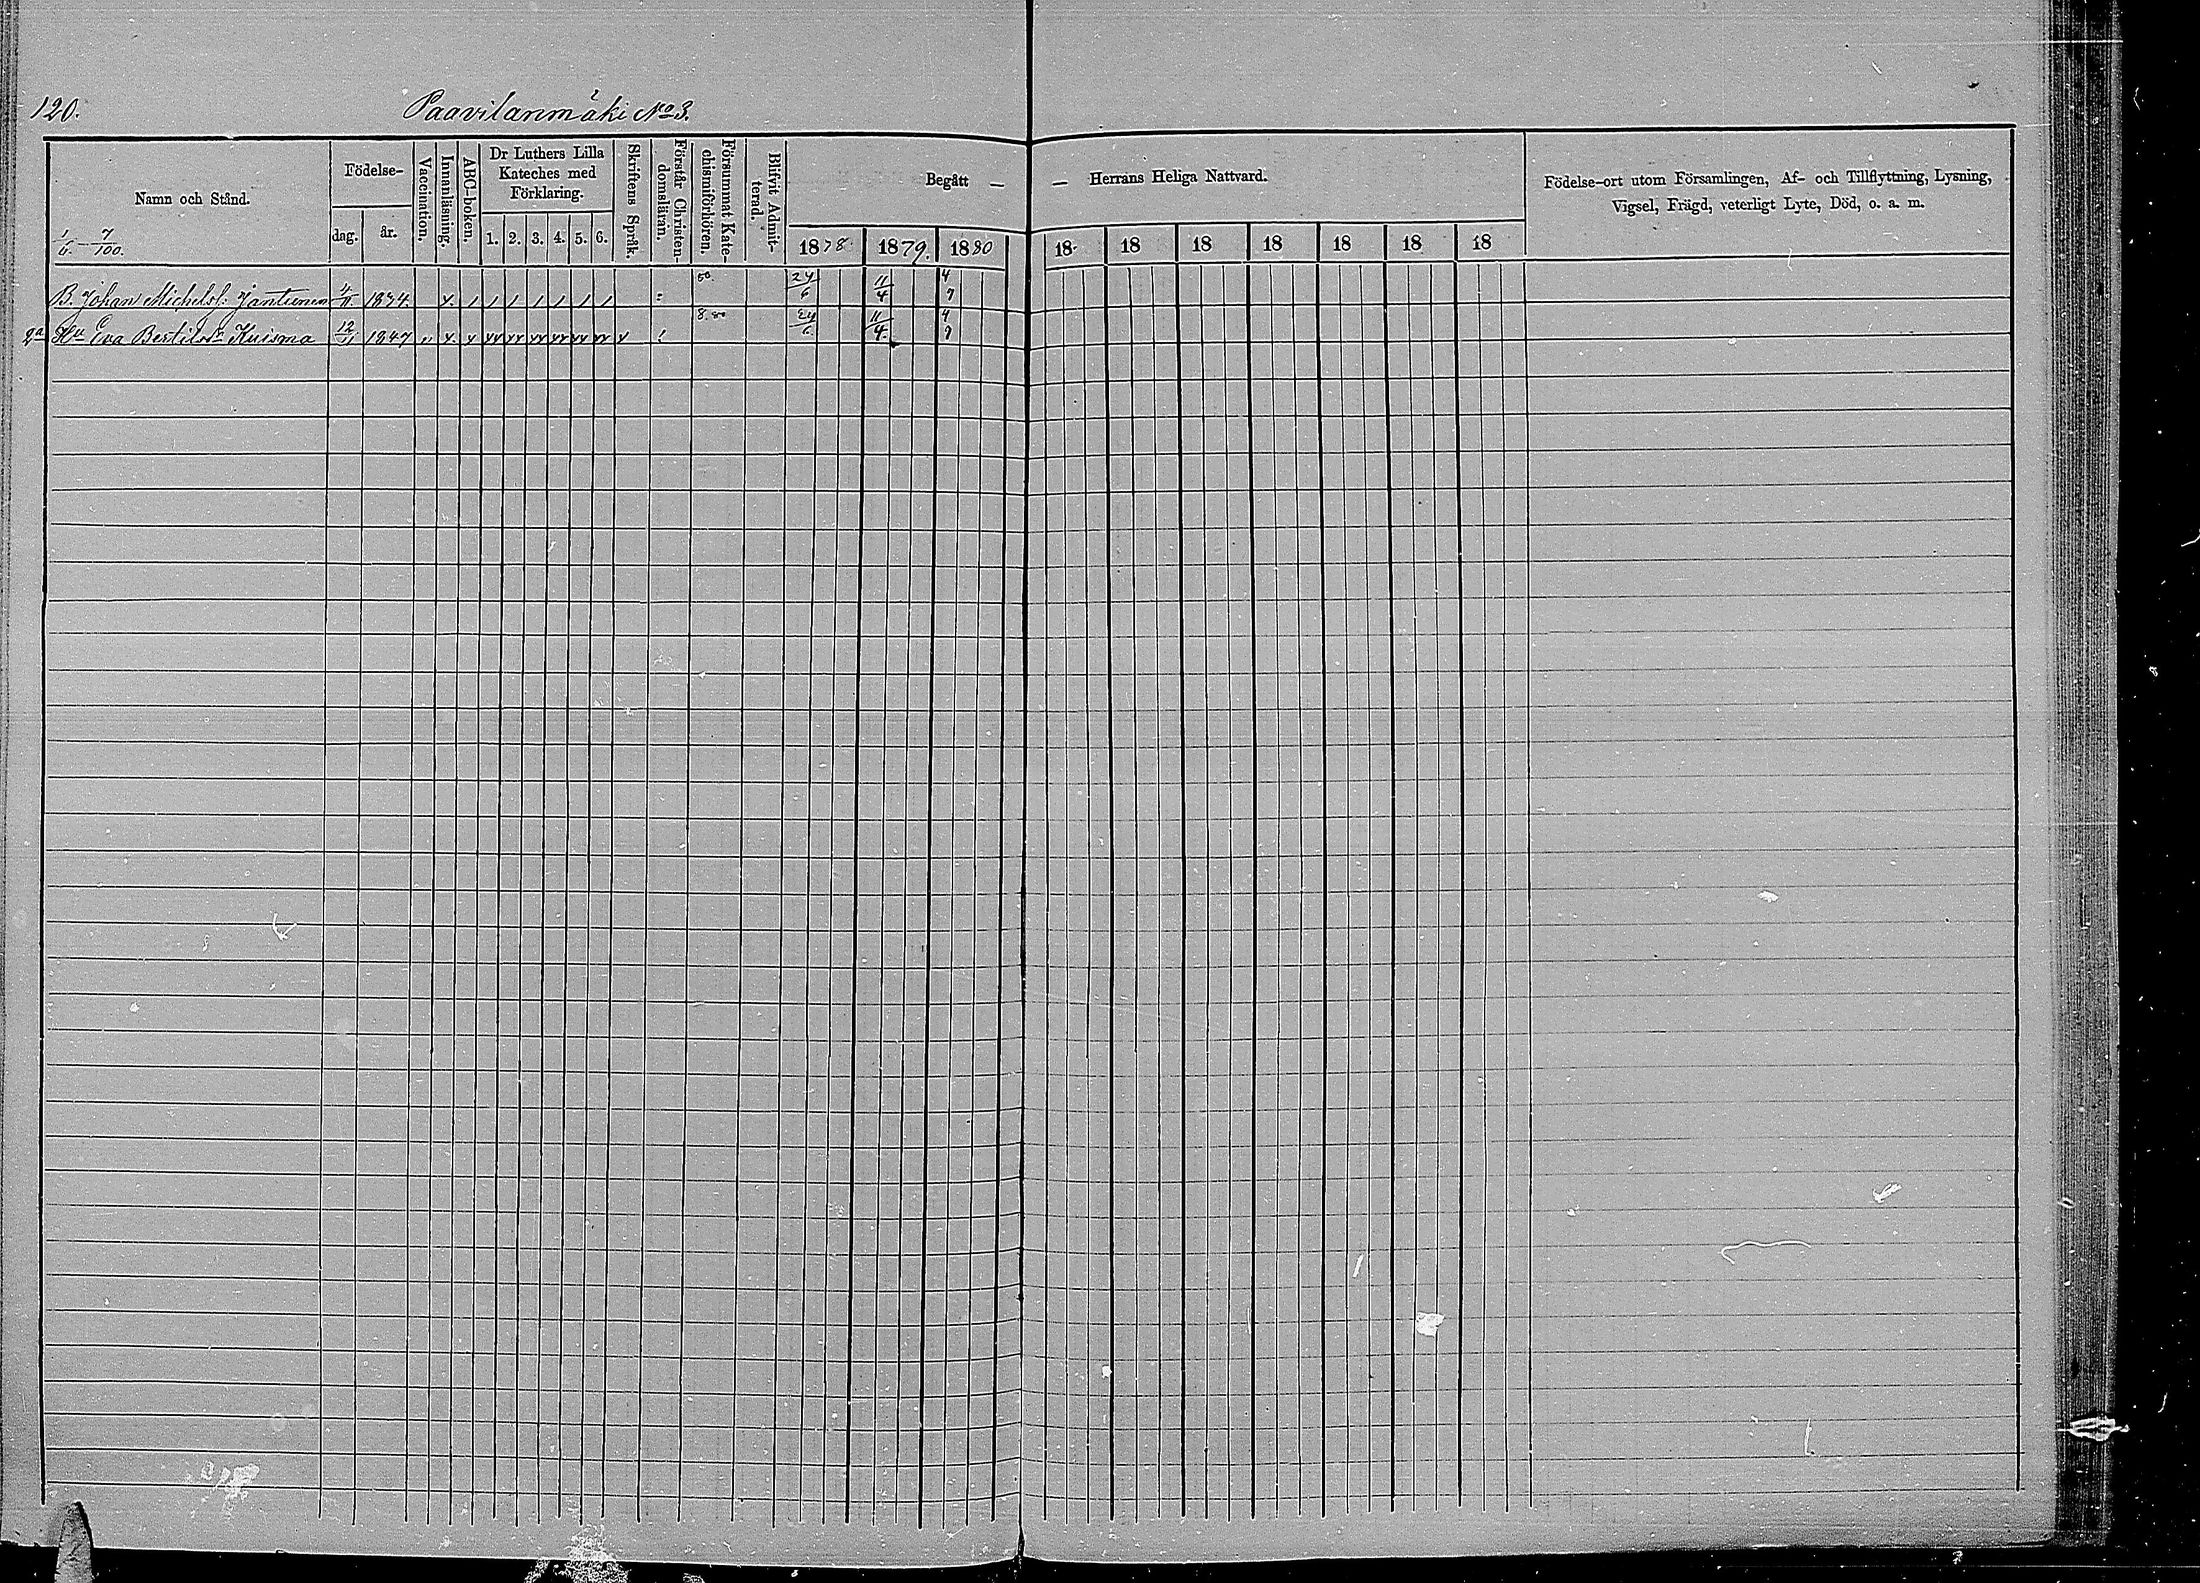 120. Paavilanmäki No 3.
Namn och Stånd.
1/6. — 7/100.
Födelse-
dag. år.
Vaccination.
Innanläsning.
ABC-boken.
Dr Luthers Lilla
Kateches med
Förklaring.
1. 2. 3. 4. 5. 6.
Skriftens Språk.
Förstår Christen-
domsläran.
Försummat Kate-
chismiförhören.
Blifvit Admit-
terad.
Begått — — Herrans Heliga Nattvard.
1878. 1879. 1880 18 18 18 18 18 18 18
Födelse-ort utom Församlingen, Af- och Tillflyttning, Lysning,
Vigsel, Frägd, veterligt Lyte, Död, o. a. m.
B. Johan Michelsf: Jantunen 4/11 1834. 80. 24/6 11/4 4/9
2a Hu Eva Bertilsdr Kuisma 12/11 1847 8.80 24/6. 11/4. 4/9